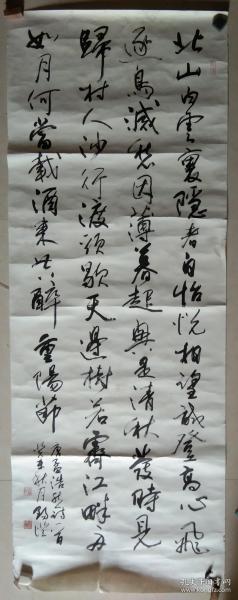 北山白云裏隱者自怡悦相望試登高心飛
逐鳥滅愁因薄暮起興是清秋發時見
歸村人沙行渡頭歇天邊樹若薺江畔舟
如月何當載酒來共醉重陽節
唐孟浩然詩一首